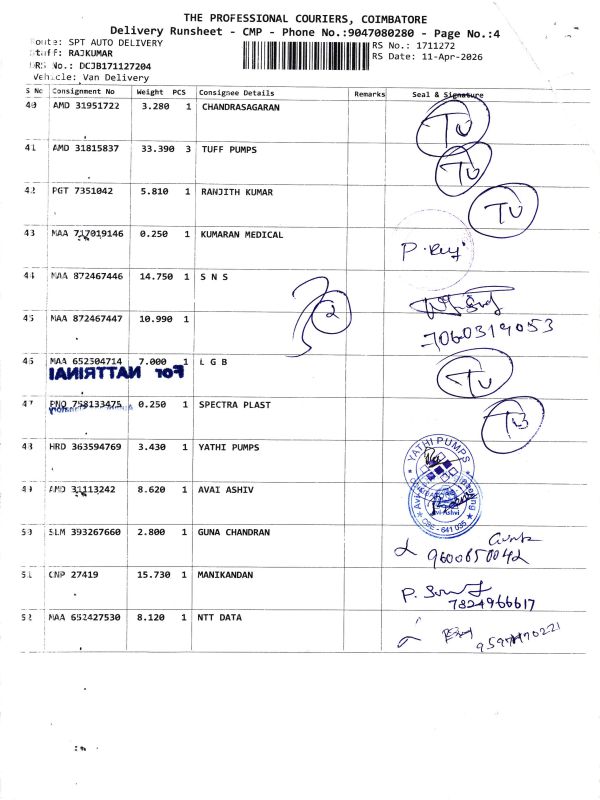 THE PROFESSIONAL COURIERS, COIMBATORE
Delivery Runsheet - CMP - Phone No.:9047080280 - Page No.:4
Route: SPT AUTO DELIVERY
RS No.: 1711272
Staff: RAJKUMAR
RS Date: 11-Apr-2026
DRS No.: DCJB171127204
Vehicle: Van Delivery
S No Consignment No Weight PCS Consignee Details Remarks Seal & Signature
40 AMD 31951722 3.280 1 CHANDRASAGARAN TU
41 AMD 31815837 33.390 3 TUFF PUMPS TU
42 PGT 7351042 5.810 1 RANJITH KUMAR TU
43 MAA 717019146 0.250 1 KUMARAN MEDICAL
44 MAA 872467446 14.750 1 S N S
2
45 MAA 872467447 10.990 1
7060319053
46 MAA 652304714 7.000 1 L G B TU
For NATTRINAI
47 PNQ 758133475 0.250 1 SPECTRA PLAST
48 HRD 363594769 3.430 1 YATHI PUMPS
YATHI PUMPS
49 AMD 31113242 8.620 1 AVAI ASHIV
CBE - 641 035
50 SLM 393267660 2.800 1 GUNA CHANDRAN
9600650042
51 CNP 27419 15.730 1 MANIKANDAN
7324966617
52 MAA 652427530 8.120 1 NTT DATA